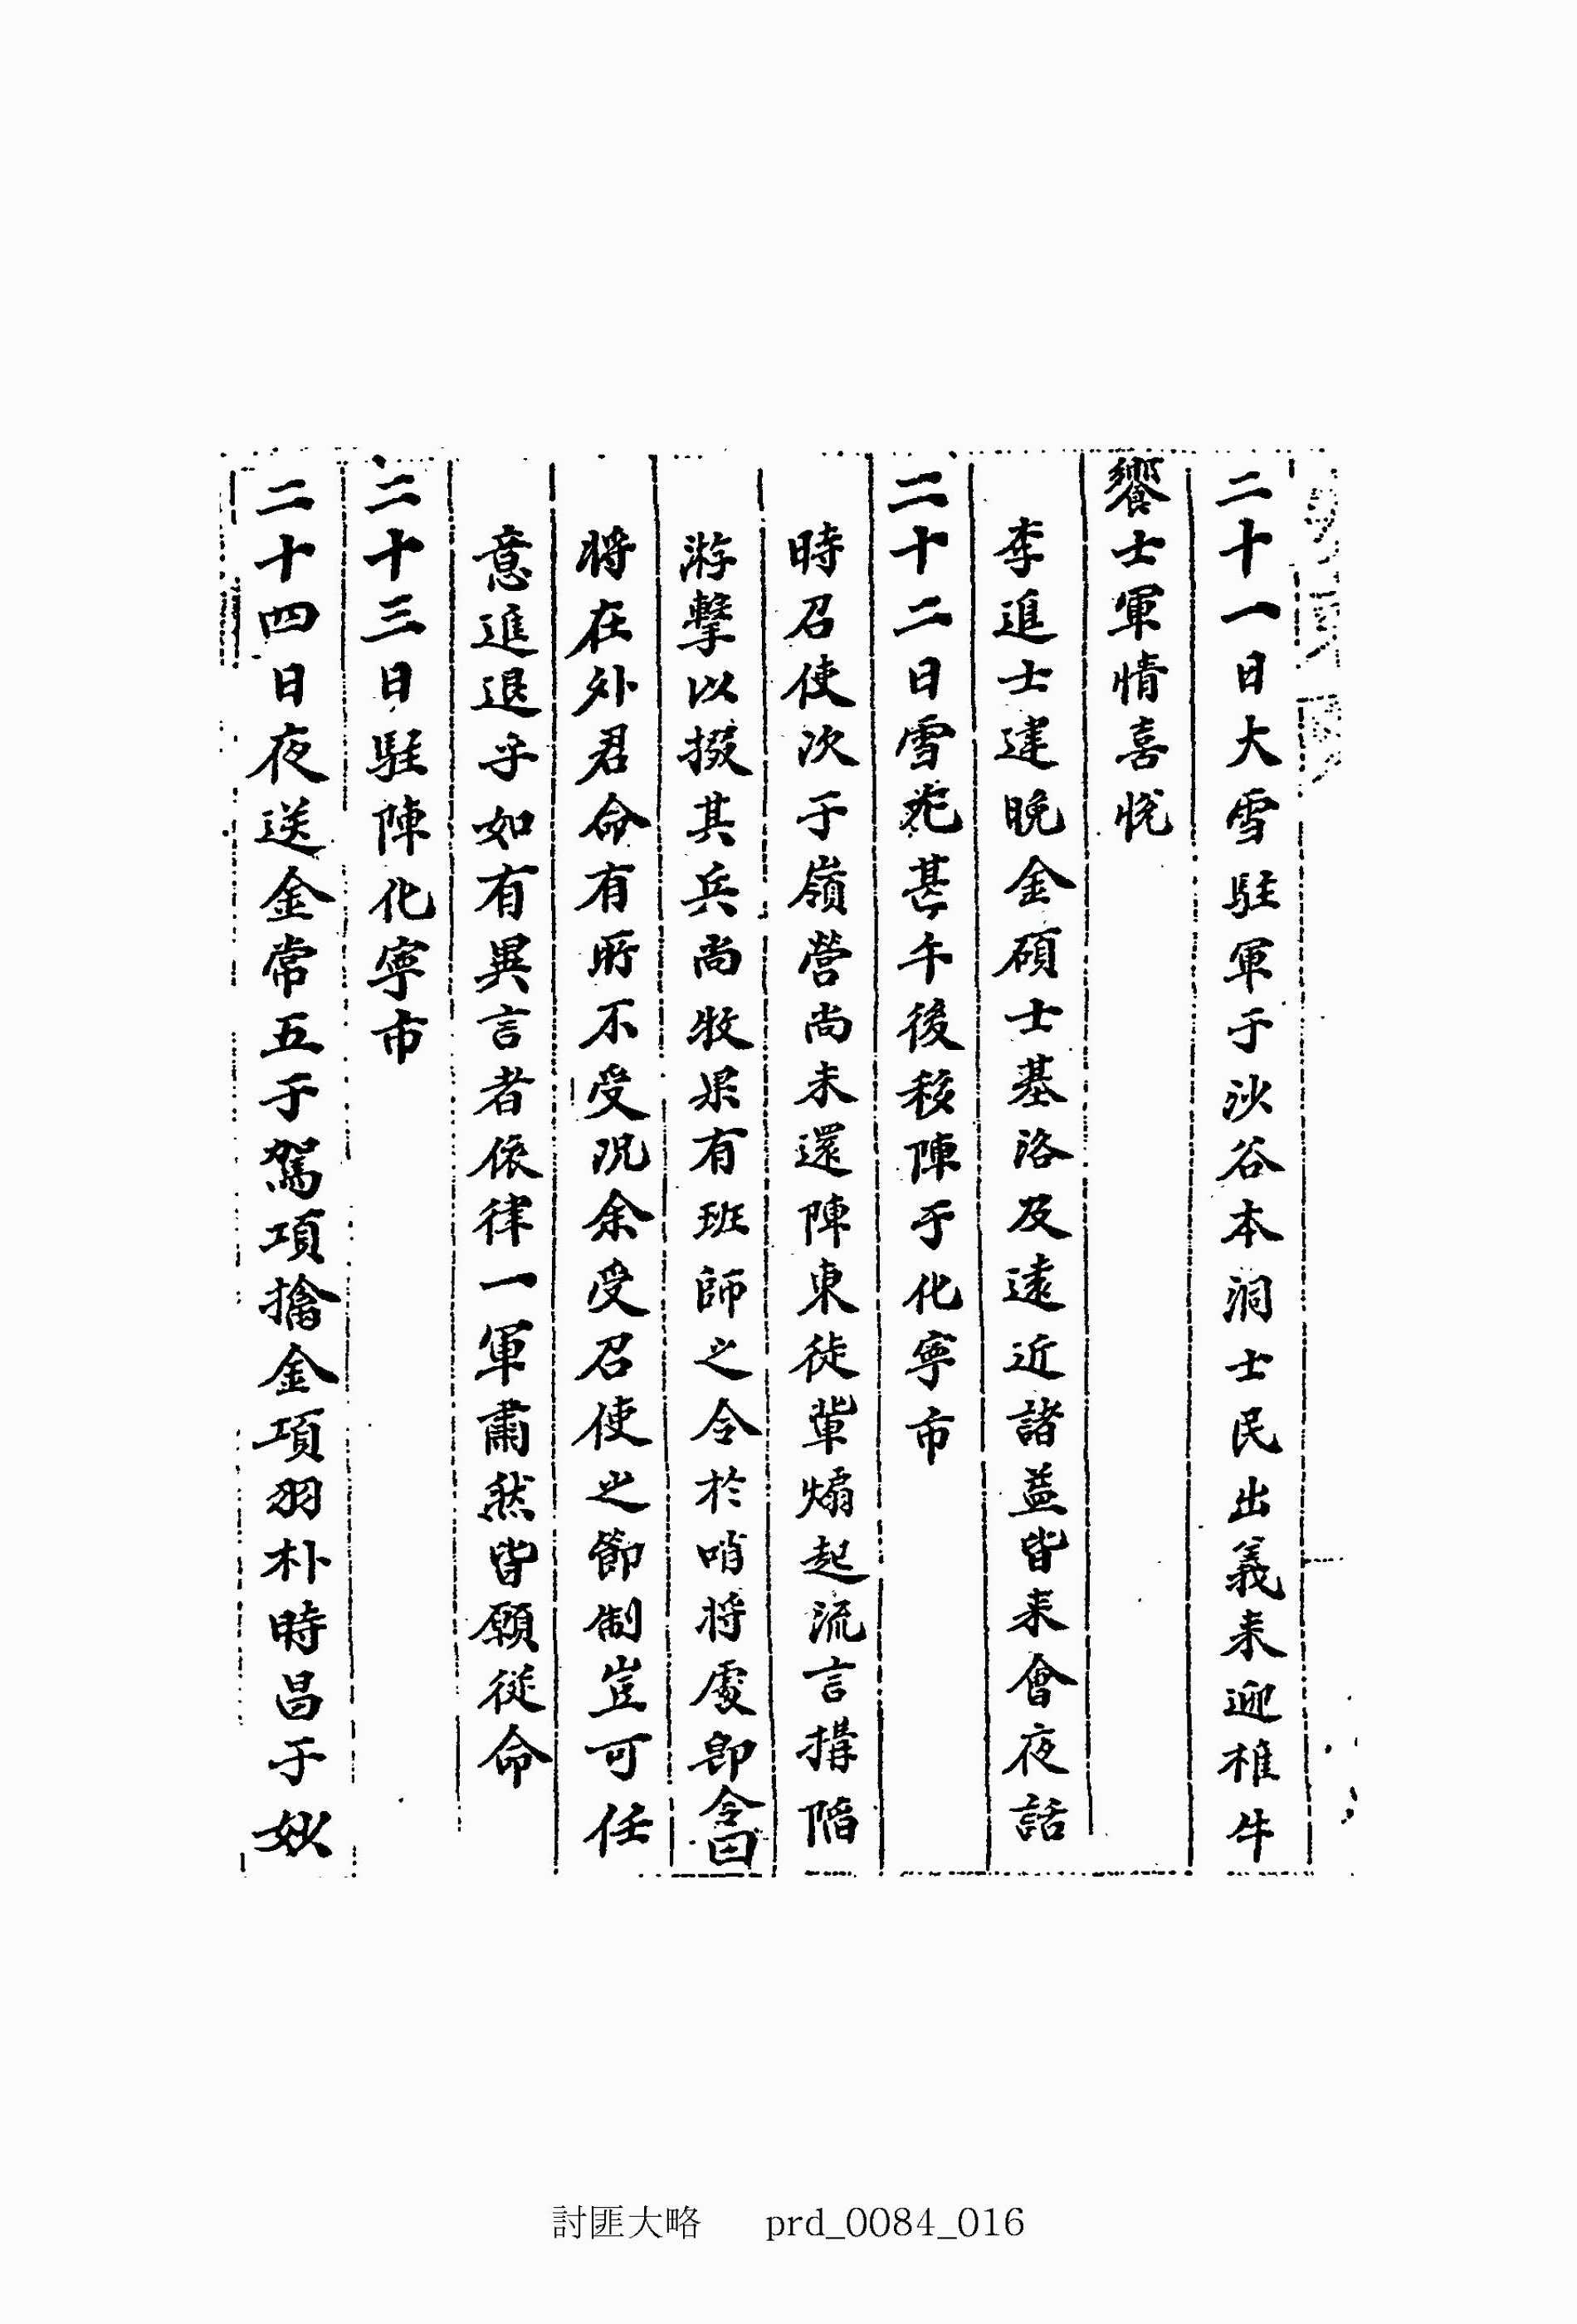 二十一日大雪駐軍于沙谷本洞士民出義来迎椎牛
饗士軍情喜悅
李進士建晩金碩士基洛及遠近諸益皆来會夜話
二十二日雪甚午後移陣于化寧市
時召使次于嶺營尚未還陣東徒軰煽起流言搆陷
游擊以掇其兵尚牧果有班師之令於哨将處即令曰
将在外君命有所不受况余受召使之節制豈可任
意進退乎如有異言者依律一軍肅然皆願從命
二十三日駐陣化寧市
二十四日夜送金常五于駕項擒金項羽朴時昌于
討匪大略 prd_0084_016